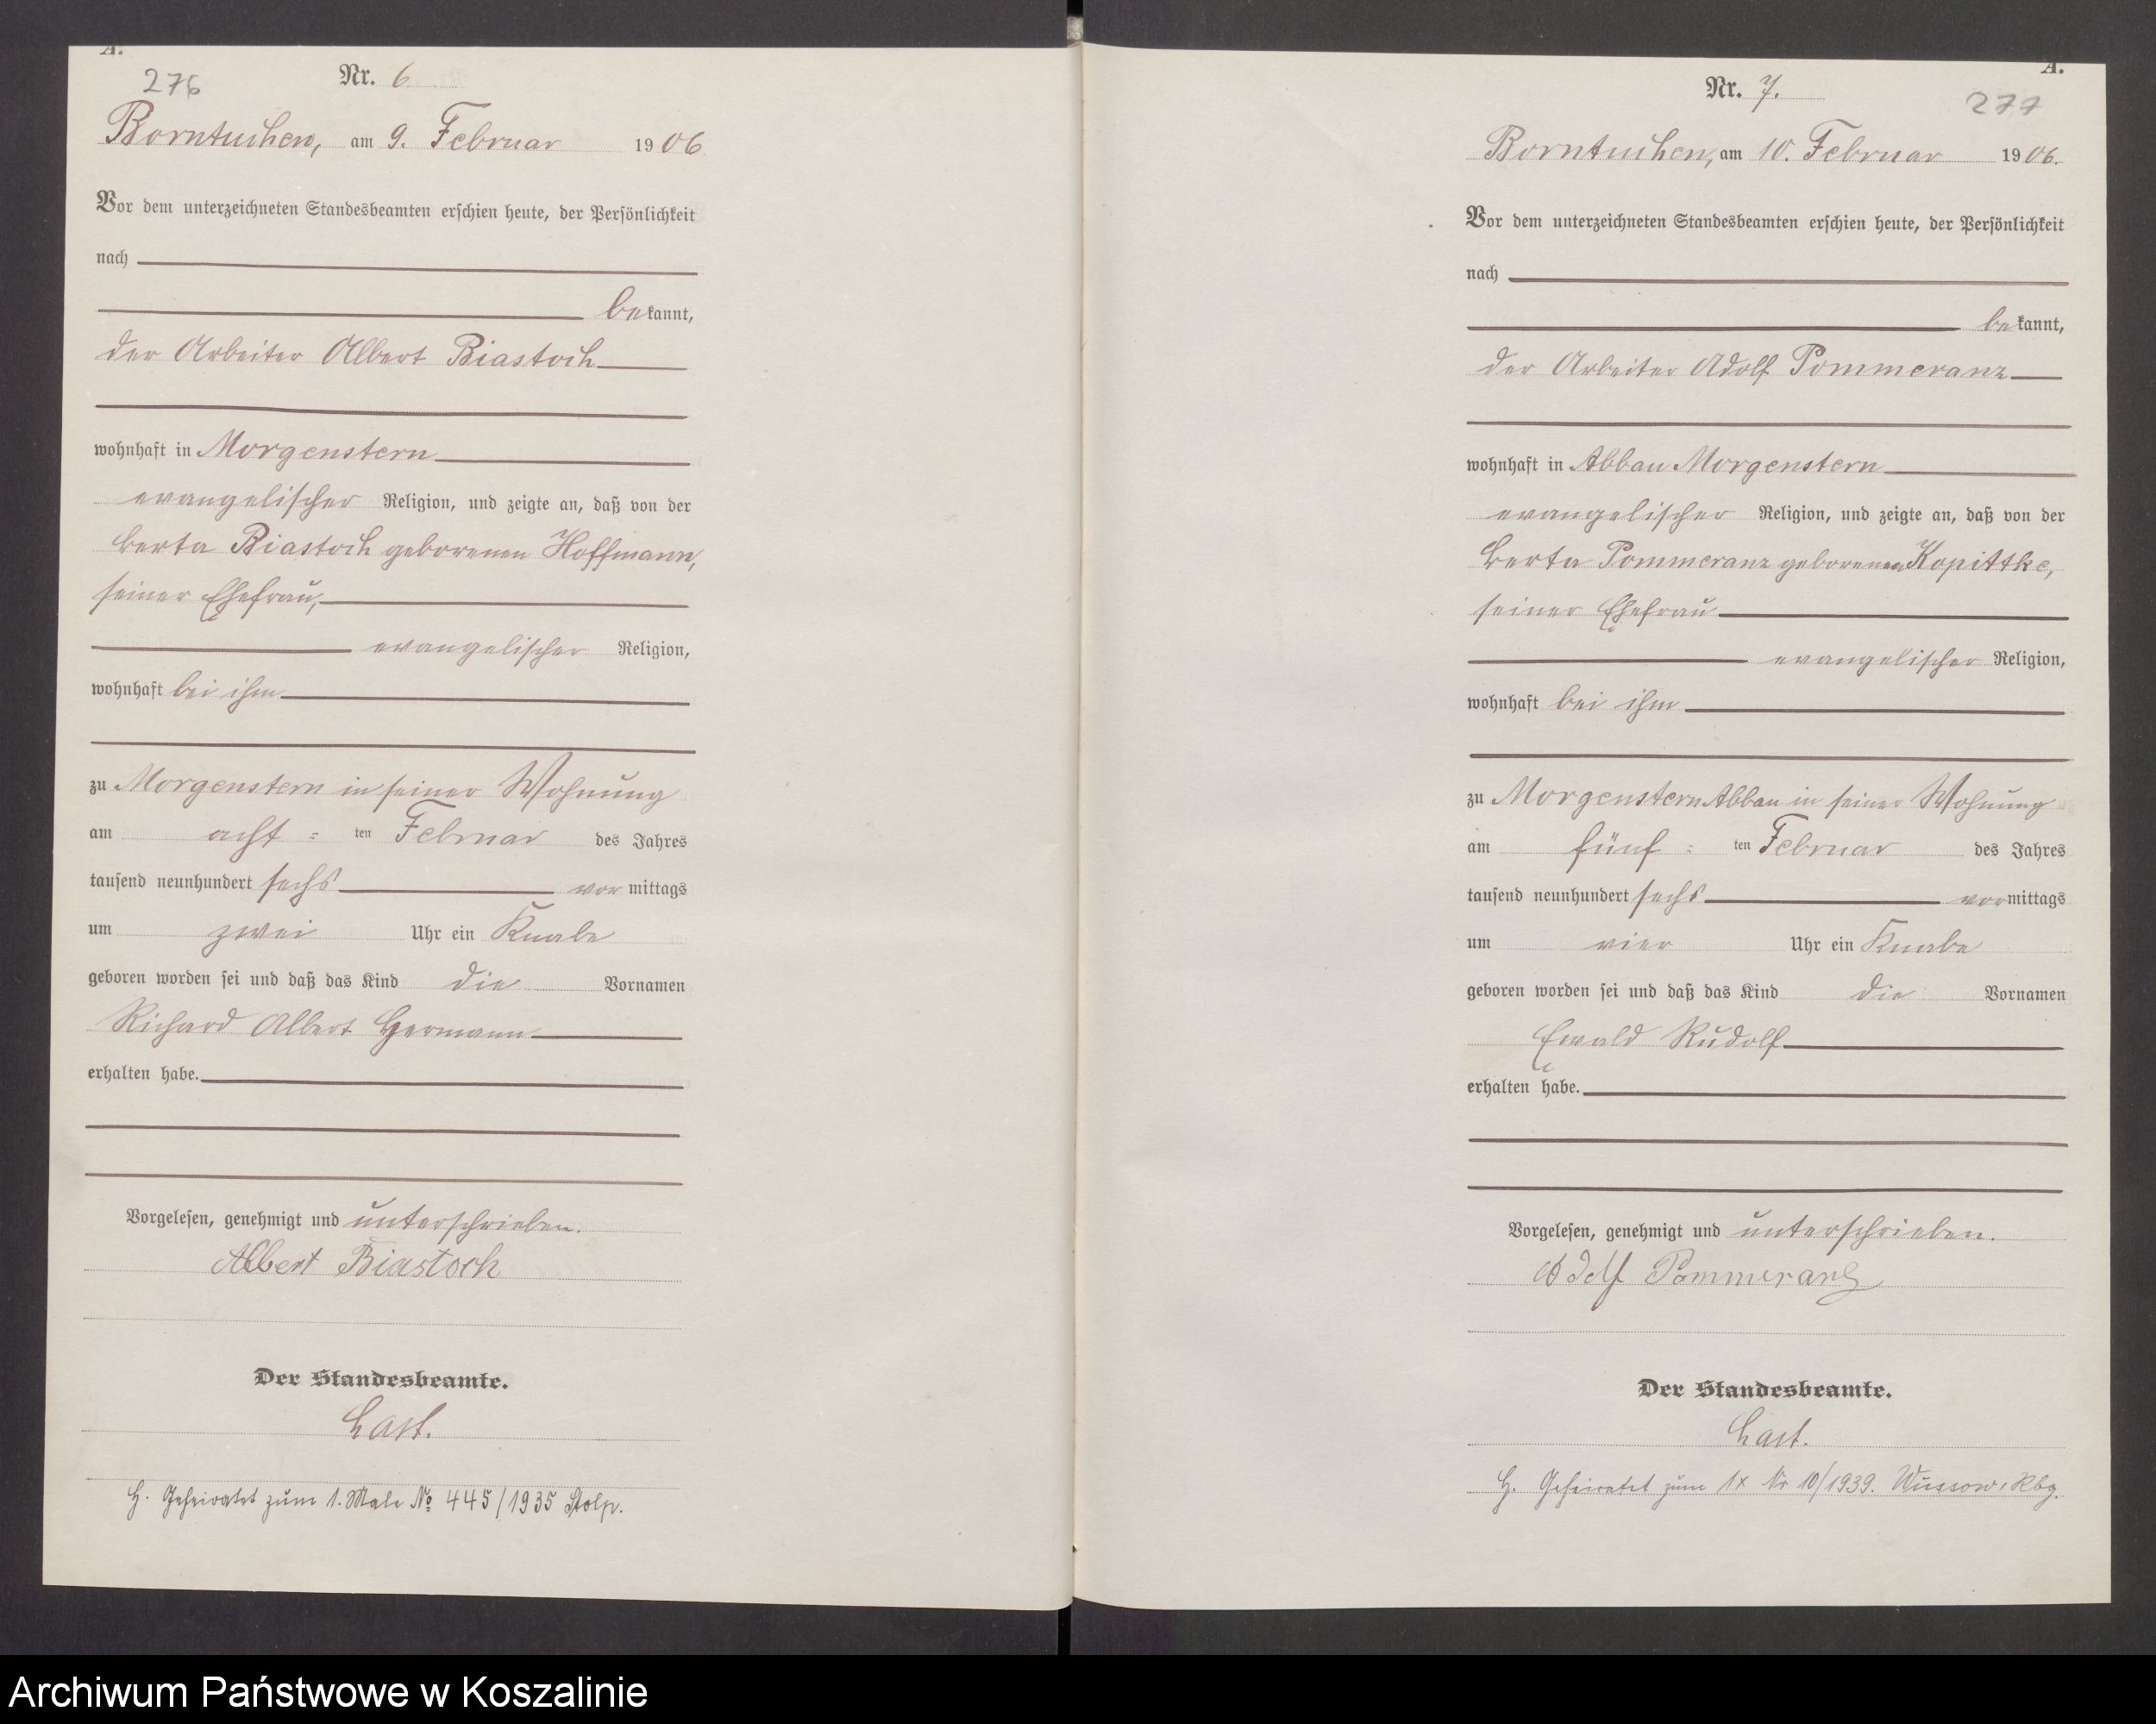 A.
276
Nr. 6
Borntuchen, am 9. Februar 1906
Vor dem unterzeichneten Standesbeamten erschien heute, der Persönlichkeit
nach
bekannt,
der Arbeiter Albert Biastoch
wohnhaft in Morgenstern
evangelischer Religion, und zeigte an, daß von der
Berta Biastoch geborenen Hoffmann,
seiner Ehefrau,
evangelischer Religion,
wohnhaft bei ihm
zu Morgenstern in seiner Wohnung
am acht=ten Februar des Jahres
tausend neunhundert sechs vormittags
um zwei Uhr ein Knabe
geboren worden sei und daß das Kind die Vornamen
Richard Albert Hermann
erhalten habe.
Vorgelesen, genehmigt und unterschrieben.
Albert Biastoch
Der Standesbeamte.
Last.
H. Geheiratet zum 1. Male No 445/1935 Stolp.
A.
Nr. 7.
277
Borntuchen, am 10. Februar 1906.
Vor dem unterzeichneten Standesbeamten erschien heute, der Persönlichkeit
nach
bekannt,
der Arbeiter Adolf Pommeranz
wohnhaft in Abbau Morgenstern
evangelischer Religion, und zeigte an, daß von der
Berta Pommeranz geborenen Kopittke,
seiner Ehefrau
evangelischer Religion,
wohnhaft bei ihm
zu Morgenstern Abbau in seiner Wohnung
am fünf=ten Februar des Jahres
tausend neunhundert sechs vormittags
um vier Uhr ein Knabe
geboren worden sei und daß das Kind die Vornamen
Ewald Rudolf
erhalten habe.
Vorgelesen, genehmigt und unterschrieben.
Adolf Pommeranz
Der Standesbeamte.
Last.
H. Geheiratet zum 1x Nr 10/1939. Wussow, Rbg.
Archiwum Państwowe w Koszalinie